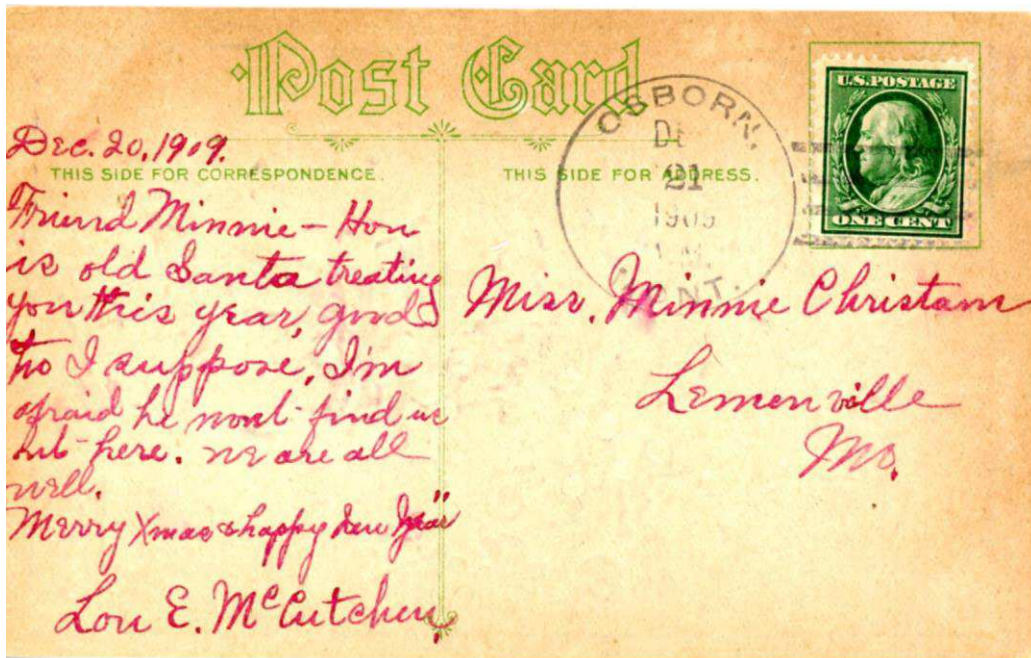 Post Card
Dec. 20, 1909.
THIS SIDE FOR CORRESPONDENCE.
Friend Minnie - How
is old Santa treating
you this year, good
I suppose, I'm
afraid he wont find us
here. we are all
well.
Merry Xmas & happy New Year
Lou E. McCutchen
THIS SIDE FOR ADDRESS.
OSBORN,
21
1909
U.S. POSTAGE
ONE CENT
Miss. Minnie Christam
Lemenville
Mo.